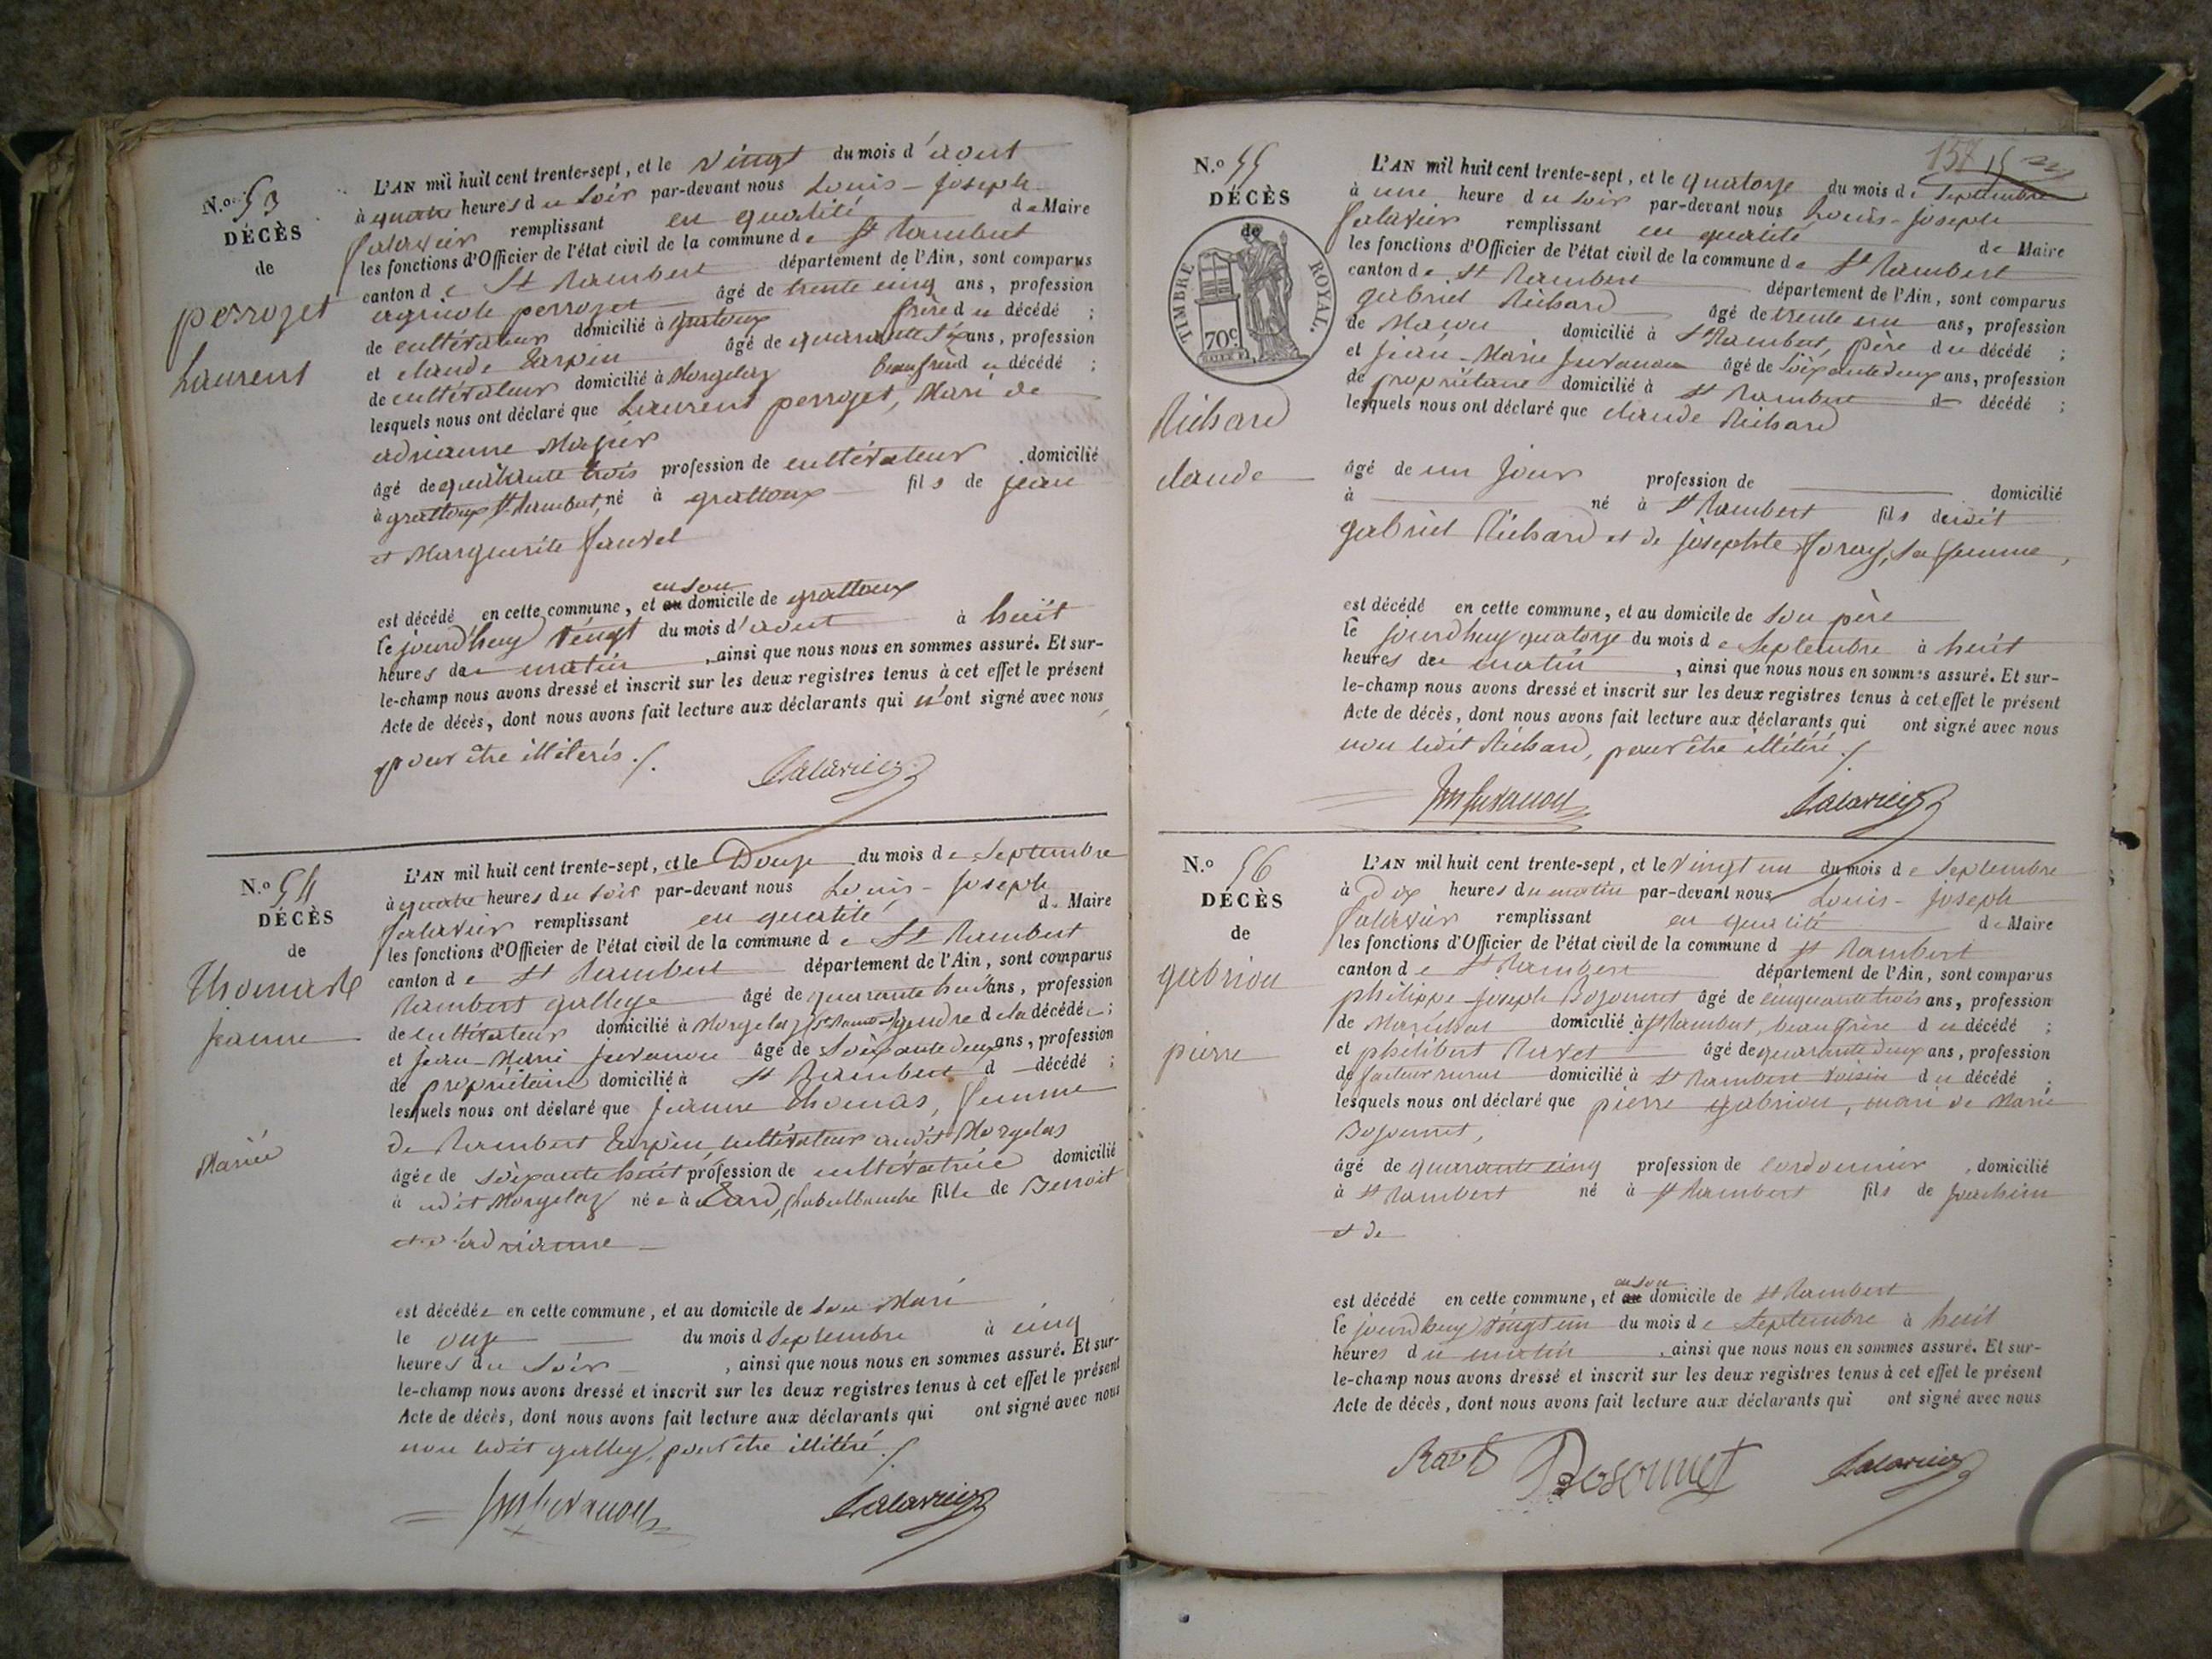 N.º 53
DÉCÈS
de
perrozet
Laurent
L'AN mil huit cent trente-sept, et le vingt du mois d'aout
à quatre heures du soir par-devant nous Louis-Joseph
Salavier remplissant en qualité de Maire
les fonctions d'Officier de l'état civil de la commune de St Rambert
canton de St Rambert département de l'Ain, sont comparus
agricole perrozet âgé de trente cinq ans, profession
de cultivateur domicilié à grattoux frère du décédé ;
et claude Tarpin âgé de quarante six ans, profession
de cultivateur domicilié à Morgelaz beaufrère du décédé ;
lesquels nous ont déclaré que Laurent perrozet, Mari de
adrianne
âgé de quarante trois profession de cultivateur domicilié
à grattoux St Rambert, né à grattoux fils de jean
et Marguerite
en son
est décédé en cette commune, et au domicile de grattoux
le jourd'huy vingt du mois d'aout à huit
heures du matin, ainsi que nous nous en sommes assuré. Et sur-
le-champ nous avons dressé et inscrit sur les deux registres tenus à cet effet le présent
Acte de décès, dont nous avons fait lecture aux déclarants qui n'ont signé avec nous
pour être illiterés ./.
Salavier
N.º 54
DÉCÈS
de
Jeanne
Mariée
L'AN mil huit cent trente-sept, et le Douze du mois de Septembre
à quatre heures du soir par-devant nous Louis-Joseph
Salavier remplissant en qualité de Maire
les fonctions d'Officier de l'état civil de la commune de St Rambert
canton de St Rambert département de l'Ain, sont comparus
Rambert galley âgé de quarante huit ans, profession
de cultivateur domicilié à Morgelaz St Rambert gendre de la décédée ;
et jean-Marie juvanon âgé de soixante deux ans, profession
de propriétaire domicilié à St Rambert d décédé ;
lesquels nous ont déclaré que jeanne thomas, femme
de Rambert Tarpin, cultivateur audit Morgelas
âgée de soixante huit profession de cultivatrice domicilié
à udit Morgelaz née à fille de Benoit
et d'adrianne
est décédée en cette commune, et au domicile de son Mari
le onze du mois d Septembre à cinq
heures du soir, ainsi que nous nous en sommes assuré. Et sur-
le-champ nous avons dressé et inscrit sur les deux registres tenus à cet effet le présent
Acte de décès, dont nous avons fait lecture aux déclarants qui ont signé avec nous
non ledit galley, pour être illitéré ./.
Jm Juvanon Salavier
157
N.º 55
DÉCÈS
de
TIMBRE ROYAL.
70c
Richard
claude
L'AN mil huit cent trente-sept, et le quatorze du mois de Septembre
à une heure du soir par-devant nous Louis-Joseph
Salavier remplissant en qualité de Maire
les fonctions d'Officier de l'état civil de la commune de St Rambert
canton de St Rambert département de l'Ain, sont comparus
gabriel Richard âgé de trente un ans, profession
de Maçon domicilié à St Rambert, père du décédé ;
et jean-Marie juvanon âgé de soixante deux ans, profession
de propriétaire domicilié à St Rambert d décédé ;
lesquels nous ont déclaré que claude Richard
âgé de un jour profession de domicilié
à né à St Rambert fils dudit
gabriel Richard et de josephte Sa femme,
est décédé en cette commune, et au domicile de son père
le jourd'huy quatorze du mois de Septembre à huit
heures du matin, ainsi que nous nous en sommes assuré. Et sur-
le-champ nous avons dressé et inscrit sur les deux registres tenus à cet effet le présent
Acte de décès, dont nous avons fait lecture aux déclarants qui ont signé avec nous
non ledit Richard, pour être illitéré ./.
Jm Juvanon Salavier
N.º 56
DÉCÈS
de
gabrion
pierre
L'AN mil huit cent trente-sept, et le vingt un du mois de Septembre
à Dix heures du matin par-devant nous Louis-Joseph
Salavier remplissant en qualité de Maire
les fonctions d'Officier de l'état civil de la commune d St Rambert
canton de St Rambert département de l'Ain, sont comparus
philippe-joseph Bozonnet âgé de cinquante trois ans, profession
de Maréchal domicilié à St Rambert, beau frère du décédé ;
et philibert Ravet âgé de quarante deux ans, profession
de facteur rural domicilié à St Rambert voisin du décédé ;
lesquels nous ont déclaré que pierre gabrion, mari de Marie
Bozonnet,
âgé de quarante cinq profession de cordonnier, domicilié
à St Rambert né à St Rambert fils de joachim
et de
en son
est décédé en cette commune, et au domicile de St Rambert
le jourd'huy vingt un du mois de Septembre à huit
heures du matin, ainsi que nous nous en sommes assuré. Et sur-
le-champ nous avons dressé et inscrit sur les deux registres tenus à cet effet le présent
Acte de décès, dont nous avons fait lecture aux déclarants qui ont signé avec nous
Bosonnet Salavier